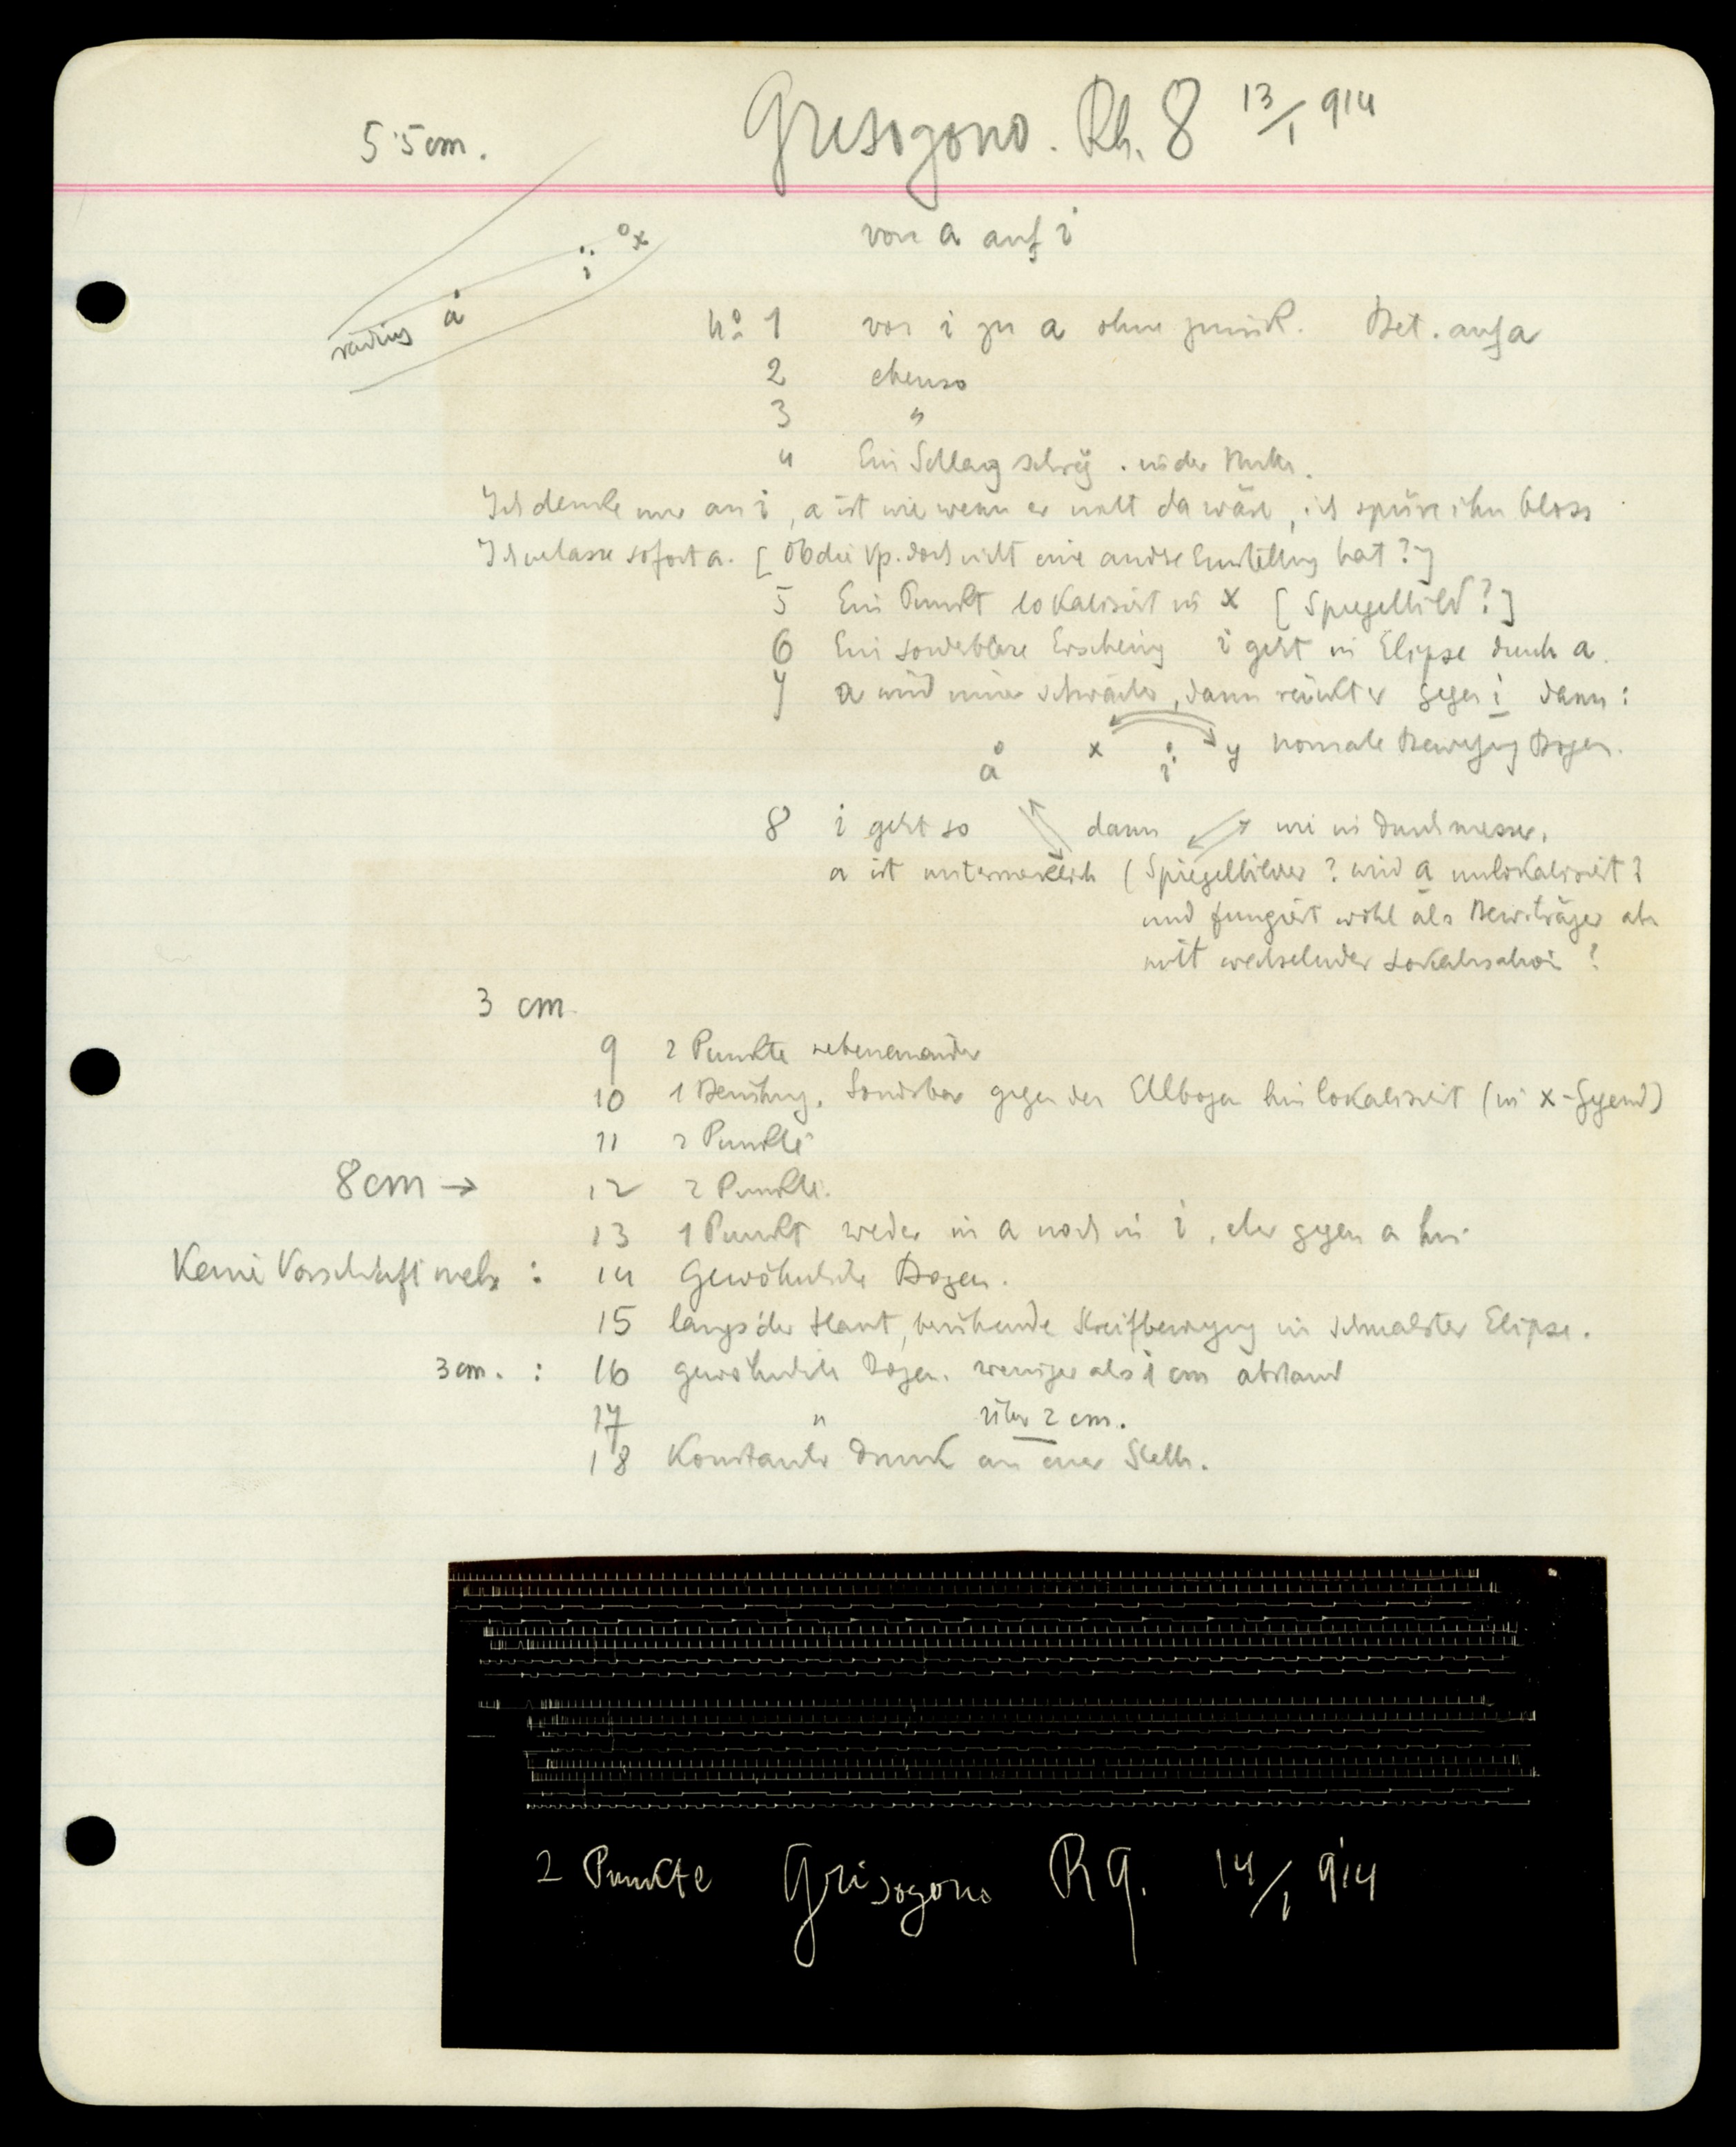 5·5 cm.
Grisogono. Rh. 8 13/1 914
von a auf i
o x
i
a
radius
No 1 von i zu a ohne zurück. Bet. auf a
2 ebenso
3 "
4 Ein Schlag schräg . in der Mitte.
Ich denke nur an i, a ist wie wenn er nicht da wäre, ich spüre ihn bloss
Ich verlasse sofort a. [Ob die Vp. doch nicht eine andre Einstellung hat?]
5 Ein Punkt lokalisiert in x [Spiegelbild?]
6 Ein sonderbare Erscheinung i geht in Elipse durch a.
7 a wird immer schwächer, dann rückt er gegen i dann:
a x i y normale Bewegung Bogen.
8 i geht so dann wie in Durchmesser.
a ist untermerklich (Spiegelbilder? wird a unlokalisiert?
und fungiert wohl als Bew.träger aber
mit wechselnder Lokalisation?
3 cm
9 2 Punkte nebeneinander
10 1 Berührung. Sonderbar gegen den Ellbogen hin lokalisiert (in x-Gegend)
11 2 Punkte
8cm → 12 2 Punkte.
13 1 Punkt weder in a noch in i, eher gegen a hin
Keine Vorschrift mehr : 14 Gewöhnliche Bogen.
15 längs der Haut, berührende Streifbewegung in schmalster Elipse.
3 cm. : 16 gewöhnliche Bogen. weniger als 1 cm abstand
17 " über 2 cm.
18 Konstanter Druck an einer Stelle.
2 Punkte Grisogono R 9. 14/1 914